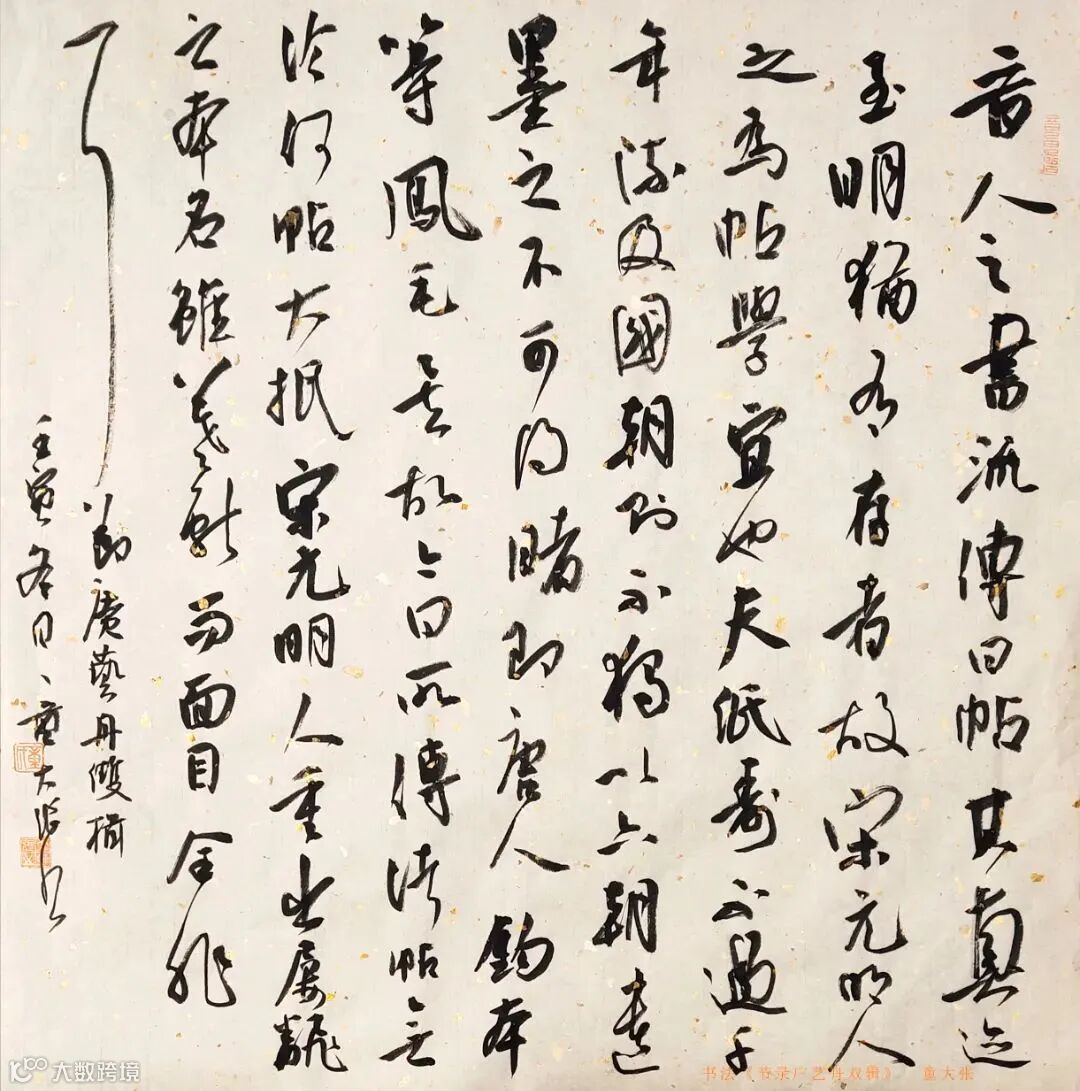 晋人之書流傳曰帖其真迹
至明猶有存者故宋元明人
之為帖學宜也夫紙壽不過千
年流及國朝則不獨以六朝遺
墨之不可得睹即唐人鈎本
等鳳毛矣故今日所傳諸帖無
論何帖大抵宋元明人重出屢翻
之本名雖羲獻而面目全非
耳
節廣藝丹雙楫
壬寅冬日童大張書
书法《节录广艺舟双辑》 童大张
大数跨境